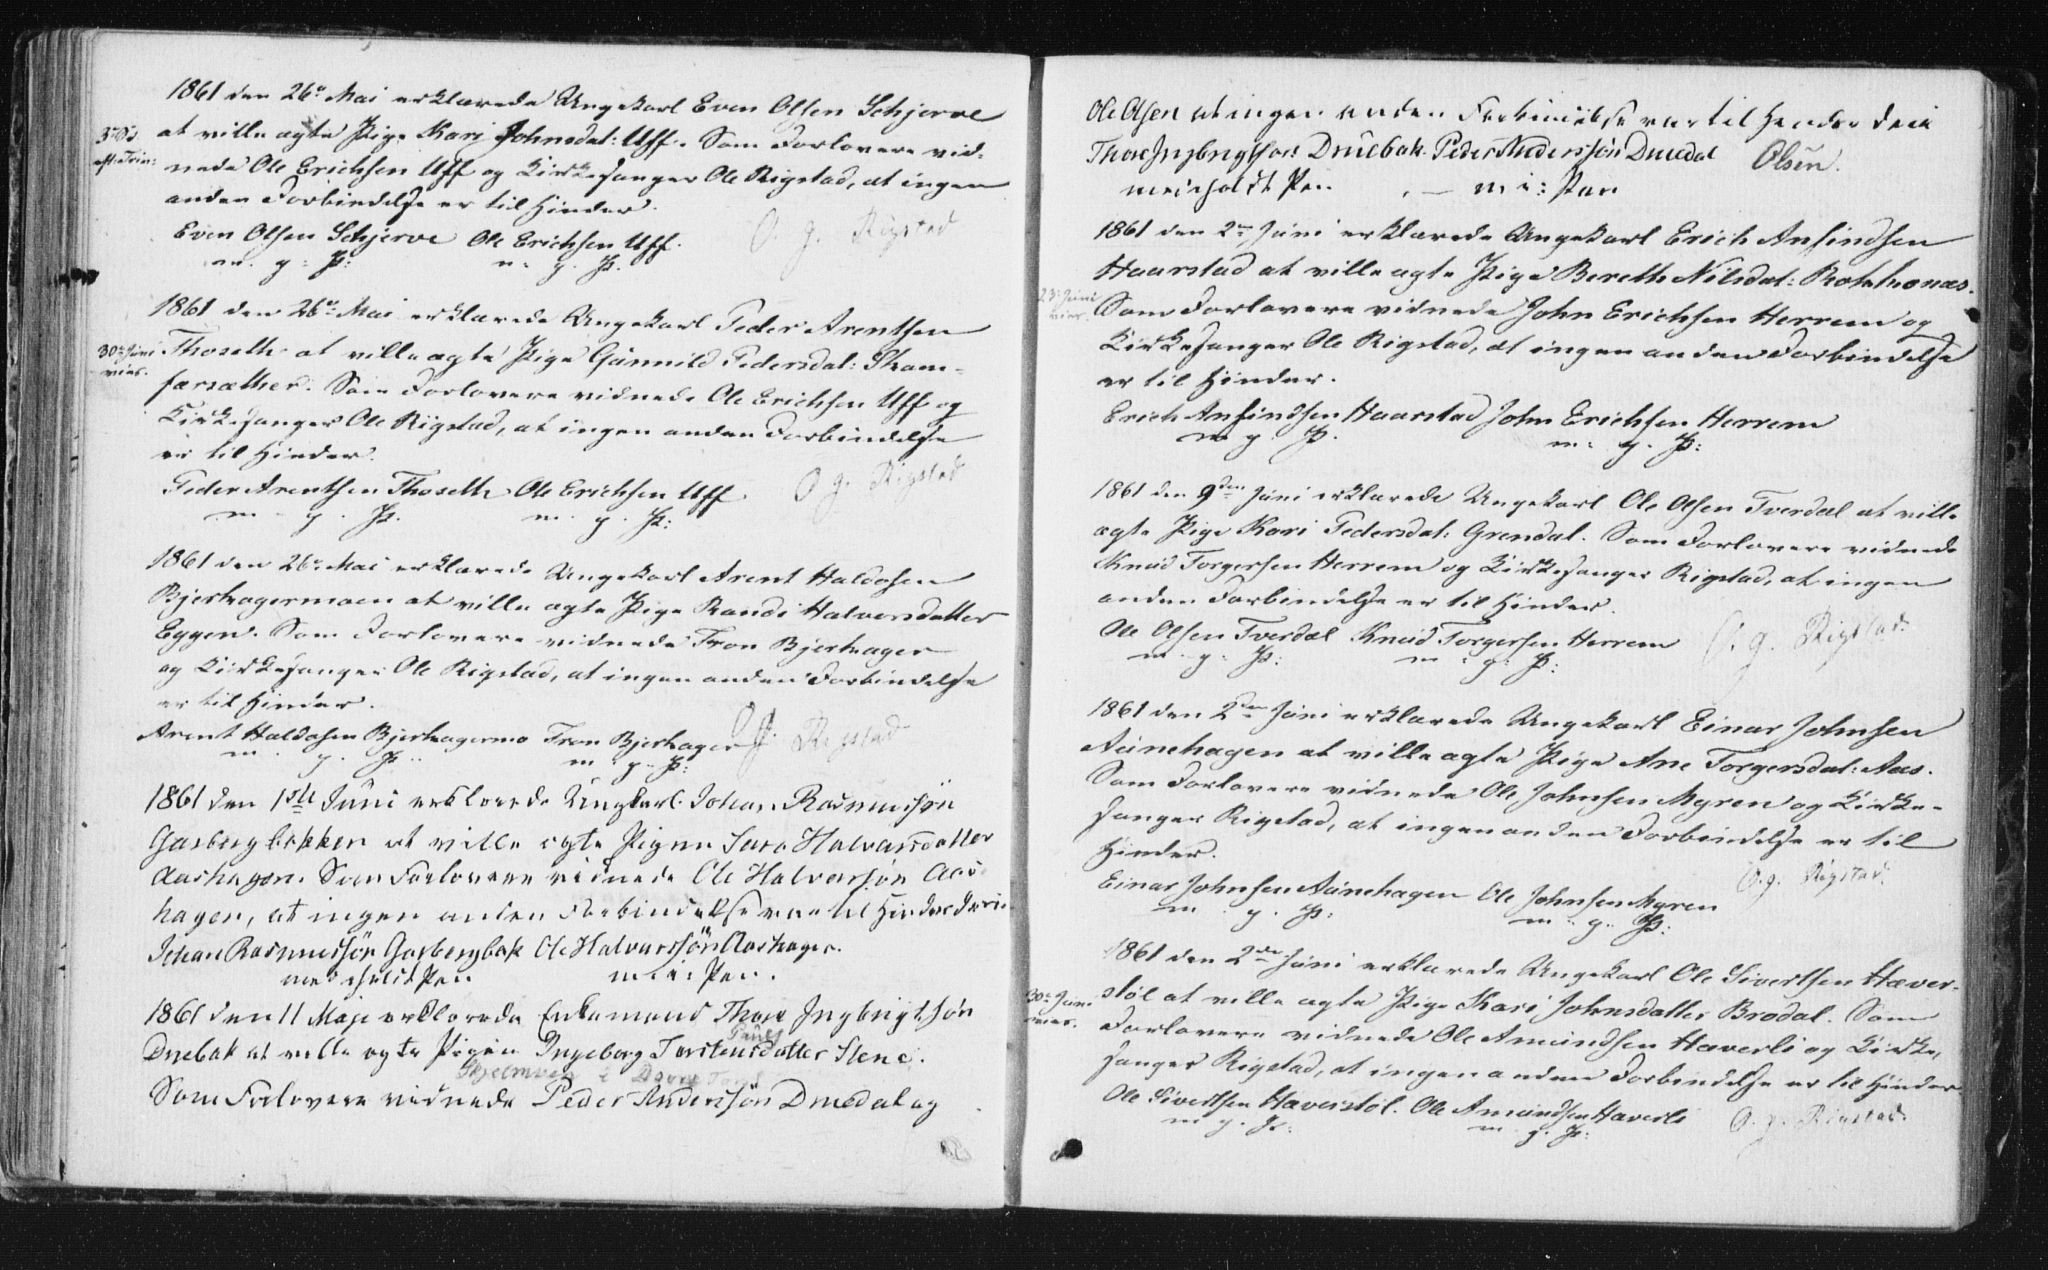 1861 den 26de Mai erklærede Ungekarl Even Olsen Schjerve
3die S.
eft. Trin:
at ville ægte Pige Kari Johnsdat: Uff. Som Forlovere vid-
nede Ole Erichsen Uff og Kirkesanger Ole Rigstad, at ingen
anden Forbindelse er til Hinder.
Even Olsen Schjerve Ole Erichsen Uff. O. G. Rigstad
m. g: P: m. g. P.
1861 den 26de Mai erklærede Ungekarl Peder Arentsen
30te Juni
viet.
Thoseth at ville ægte Pige Gunnild Pedersdat: Stam-
færsæther. Som Forlovere vidnede Ole Erichsen Uff og
Kirkesanger Ole Rigstad, at ingen anden Forbindelse
er til Hinder.
Peder Arentsen Thoseth Ole Erichsen Uff O G. Rigstad
m. g. P. m. g. P:
1861 den 26de Mai erklærede Ungekarl Arent Haldosen
Bjerkagermoen at ville ægte Pige Randi Halvorsdatter
Eggen. Som Forlovere vidnede Tron Bjerkager
og Kirkesanger Ole Rigstad, at ingen anden Forbindelse
er til Hinder.
Arent Haldosen Bjerkagermo Tron Bjerkager O G. Rigstad
m. g. P. m. g. P:
1861 den 1ste Juni erklærede Ungkarl Johan Rasmussøn
Garbergbekken at ville egte Pigen Sara Halvarsdatter
Aashagen. Som Forlovere vidnede Ole Halvarsøn Aas
hagen, at ingen anden Forbindelse var til Hinder deri
Johan Rasmussøn Garbergbak Ole Halvarssøn Aashagen.
med holdt Pen m i: Pen.
1861 den 11 Maje erklærede Enkemand Thore Ingbrigtsøn
Pauls
Druebak at ville egte Pigen Ingeborg Torstensdatter Stene.
Som Forlovere vidnede Peder Anderssøn Druedal og
Ole Olsen at ingen anden Forbindelse var til Hender deri
Thore Ingbrigtsøn Druebak Peder Anderssøn Druedal Olsen.
med holdt Pen m i: Pen
1861 den 2den Juni erklærede Ungekarl Erich Anfindsen
Haarstad at ville ægte Pige Bereth Nilsdat:
23de Juni
viet.
Som Forlovere vidnede John Erichsen Herrem og
Kirkesanger Ole Rigstad, at ingen anden Forbindelse
er til Hinder.
Erich Anfindsen Haarstad John Erichsen Herrem
m g. P. m. g. P:
1861 den 9den Juni erklærede Ungekarl Ole Olsen Tverdal at ville
ægte Pige Kari Pedersdat: Grendal. Som Forlovere vidnede
Knud Torgersen Herrem og Kirkesanger Rigstad, at ingen
anden Forbindelse er til Hinder.
Ole Olsen Tverdal Knud Torgersen Herrem O. G. Rigstad.
m. g. P: m. g: P:
1861 den 2den Juni erklærede Ungekarl Einar Johnsen
Aunehagen at ville ægte Pige Ane Torgersdat: Aas.
Som Forlovere vidnede Ole Johnsen Myren og Kirke-
sanger Rigstad, at ingen anden Forbindelse er til
Hinder.
Einar Johnsen Aunehagen Ole Johnsen Myren O. G. Rigstad.
m. g. P: m. g. P:
1861 den 2den Juni erklærede Ungekarl Ole Sivertsen Hæver-
30te Juni
viet.
støl at ville ægte Pige Kari Johnsdatter Brodal. Som
Forlovere vidnede Ole Amundsen Hæverli og Kirke,
sanger Rigstad, at ingen anden Forbindelse er til Hinder.
Ole Sivertsen Hæverstøl. Ole Amundsen Hæverli O. G. Rigstad.
m g. P: m. g. P: